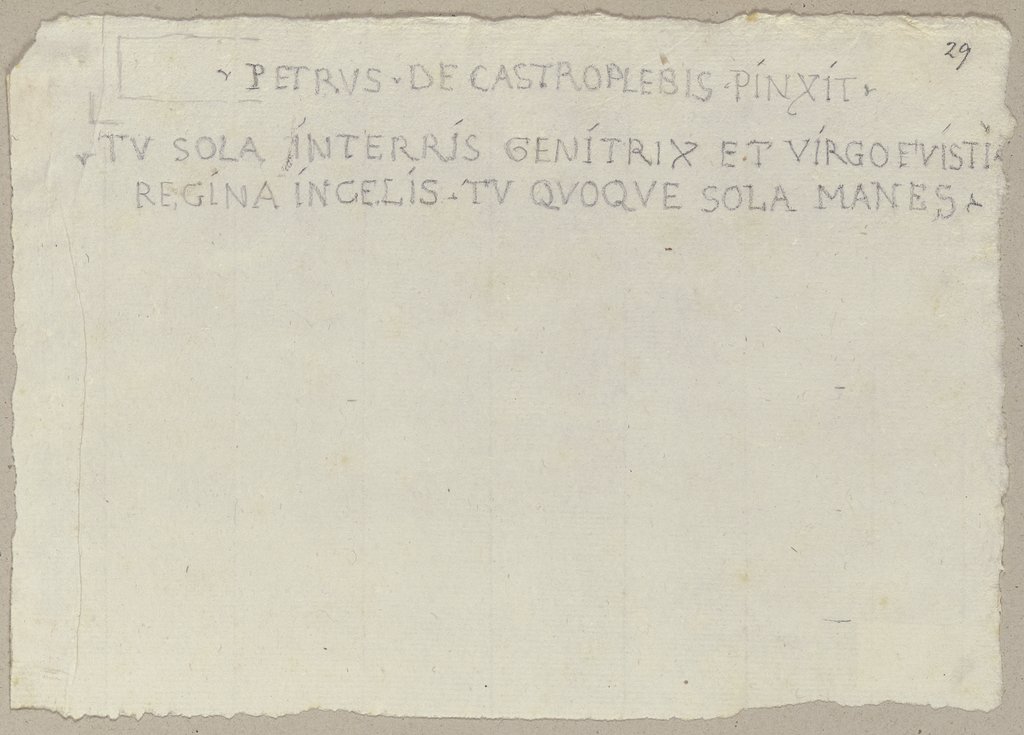 29
PETRVS · DE CASTROPLEBIS · PÍNXÍT
TV SOLA ÍNTERRÍS GENÍTRIX ET VÍRGO FVÍSTI
REGÍNA ÍNCELÍS · TV QVOQVE SOLA MANES